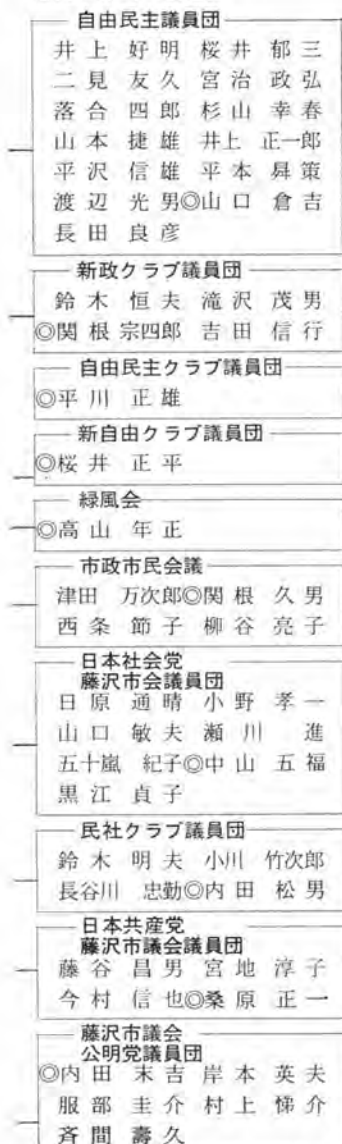 自由民主議員団
井上好明 桜井郁三
二見友久 宮治政弘
落合四郎 杉山幸春
山本捷雄 井上正一郎
平沢信雄 平本昇策
渡辺光男◎山口倉吉
長田良彦
新政クラブ議員団
鈴木恒夫 滝沢茂男
◎関根宗四郎 吉田信行
自由民主クラブ議員団
◎平川正雄
新自由クラブ議員団
◎桜井正平
緑風会
◎高山年正
市政市民会議
津田万次郎◎関根久男
西条節子 柳谷亮子
日本社会党
藤沢市会議員団
日原通晴 小野孝一
山口敏夫 瀬川進
五十嵐紀子◎中山五福
黒江貞子
民社クラブ議員団
鈴木明夫 小川竹次郎
長谷川忠勤◎内田松男
日本共産党
藤沢市議会議員団
藤谷昌男 宮地淳子
今村信也◎桑原正一
藤沢市議会
公明党議員団
◎内田末吉 岸本英夫
服部圭介 村上悌介
斉間壽久